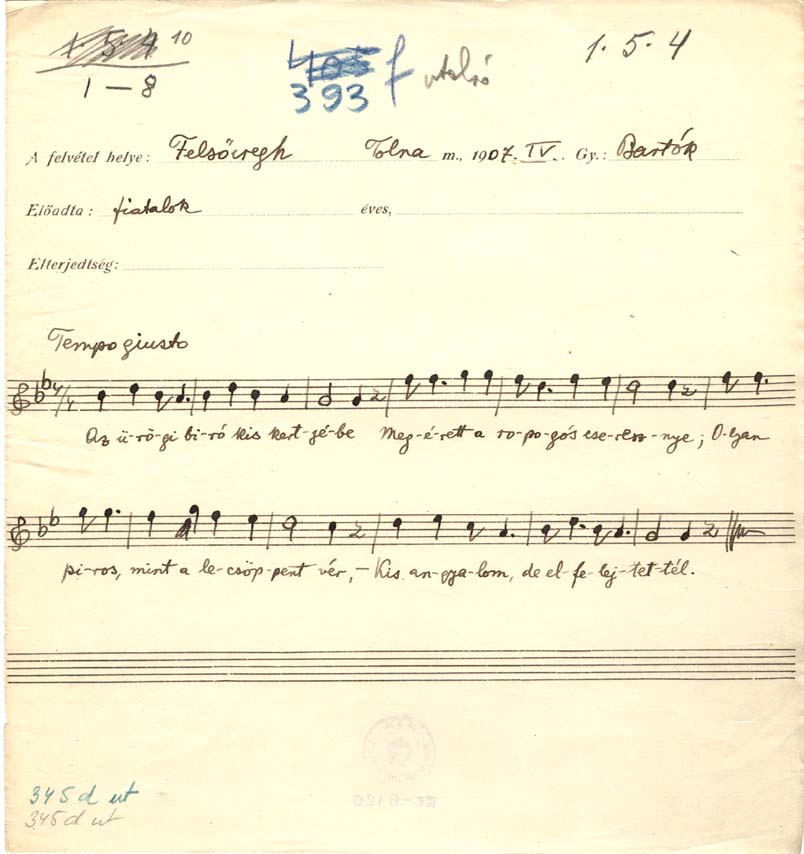 1. 5. 4 10
1 – 8
393 f utolsó
1. 5. 4
A felvétel helye: Felsőiregh Tolna m., 1907. IV. Gy.: Bartók
Előadta: fiatalok éves,
Elterjedtség:
Tempo giusto
4/4
Az ü-rö-gi bi-ró kis kert-jé-be Meg-é-rett a ro-po-gós cse-resz-nye; O-lyan
pi-ros, mint a le-csöp-pent vér, – Kis an-gya-lom, de el-fe-lej-tet-tél.
345 d ut
345 d ut